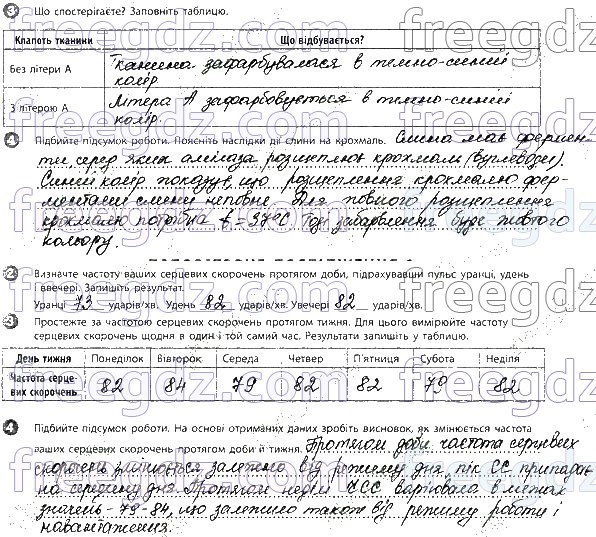 3 Що спостерігаєте? Заповніть таблицю.
Клапоть тканини Що відбувається?
Без літери А Тканина зафарбувалася в темно-синій
колір
З літерою А Літера А зафарбовується в темно-синій
колір
4 Підбийте підсумок роботи. Поясніть наслідки дії слини на крохмаль. Слина має фермен-
ти серед яких амілаза розщеплює крохмаль (вуглеводи).
Синій колір показує, що розщеплення крохмалю фер-
ментами слини неповне. Для повного розщеплення
крохмалю потрібна t=37°C Тоді забарвлення буде жовтого
кольору.
2 Визначте частоту ваших серцевих скорочень протягом доби, підрахувавши пульс уранці, удень
і ввечері. Запишіть результат.
Уранці 73 ударів/хв. Удень 82 ударів/хв. Увечері 82 ударів/хв.
3 Простежте за частотою серцевих скорочень протягом тижня. Для цього вимірюйте частоту
серцевих скорочень щодня в один і той самий час. Результати запишіть у таблицю.
День тижня Понеділок Вівторок Середа Четвер П'ятниця Субота Неділя
Частота серце-
вих скорочень 82 84 79 82 82 79 82
4 Підбийте підсумок роботи. На основі отриманих даних зробіть висновок, як змінюється частота
ваших серцевих скорочень протягом доби й тижня. Протягом доби частота серцевих
скорочень змінюється залежно від режиму дня пік СС припадає
на середину дня. Протягом неділі ЧСС варіювала в межах
значень - 79-84, що залежило також від режиму роботи і
навантаження.
freegdz.com